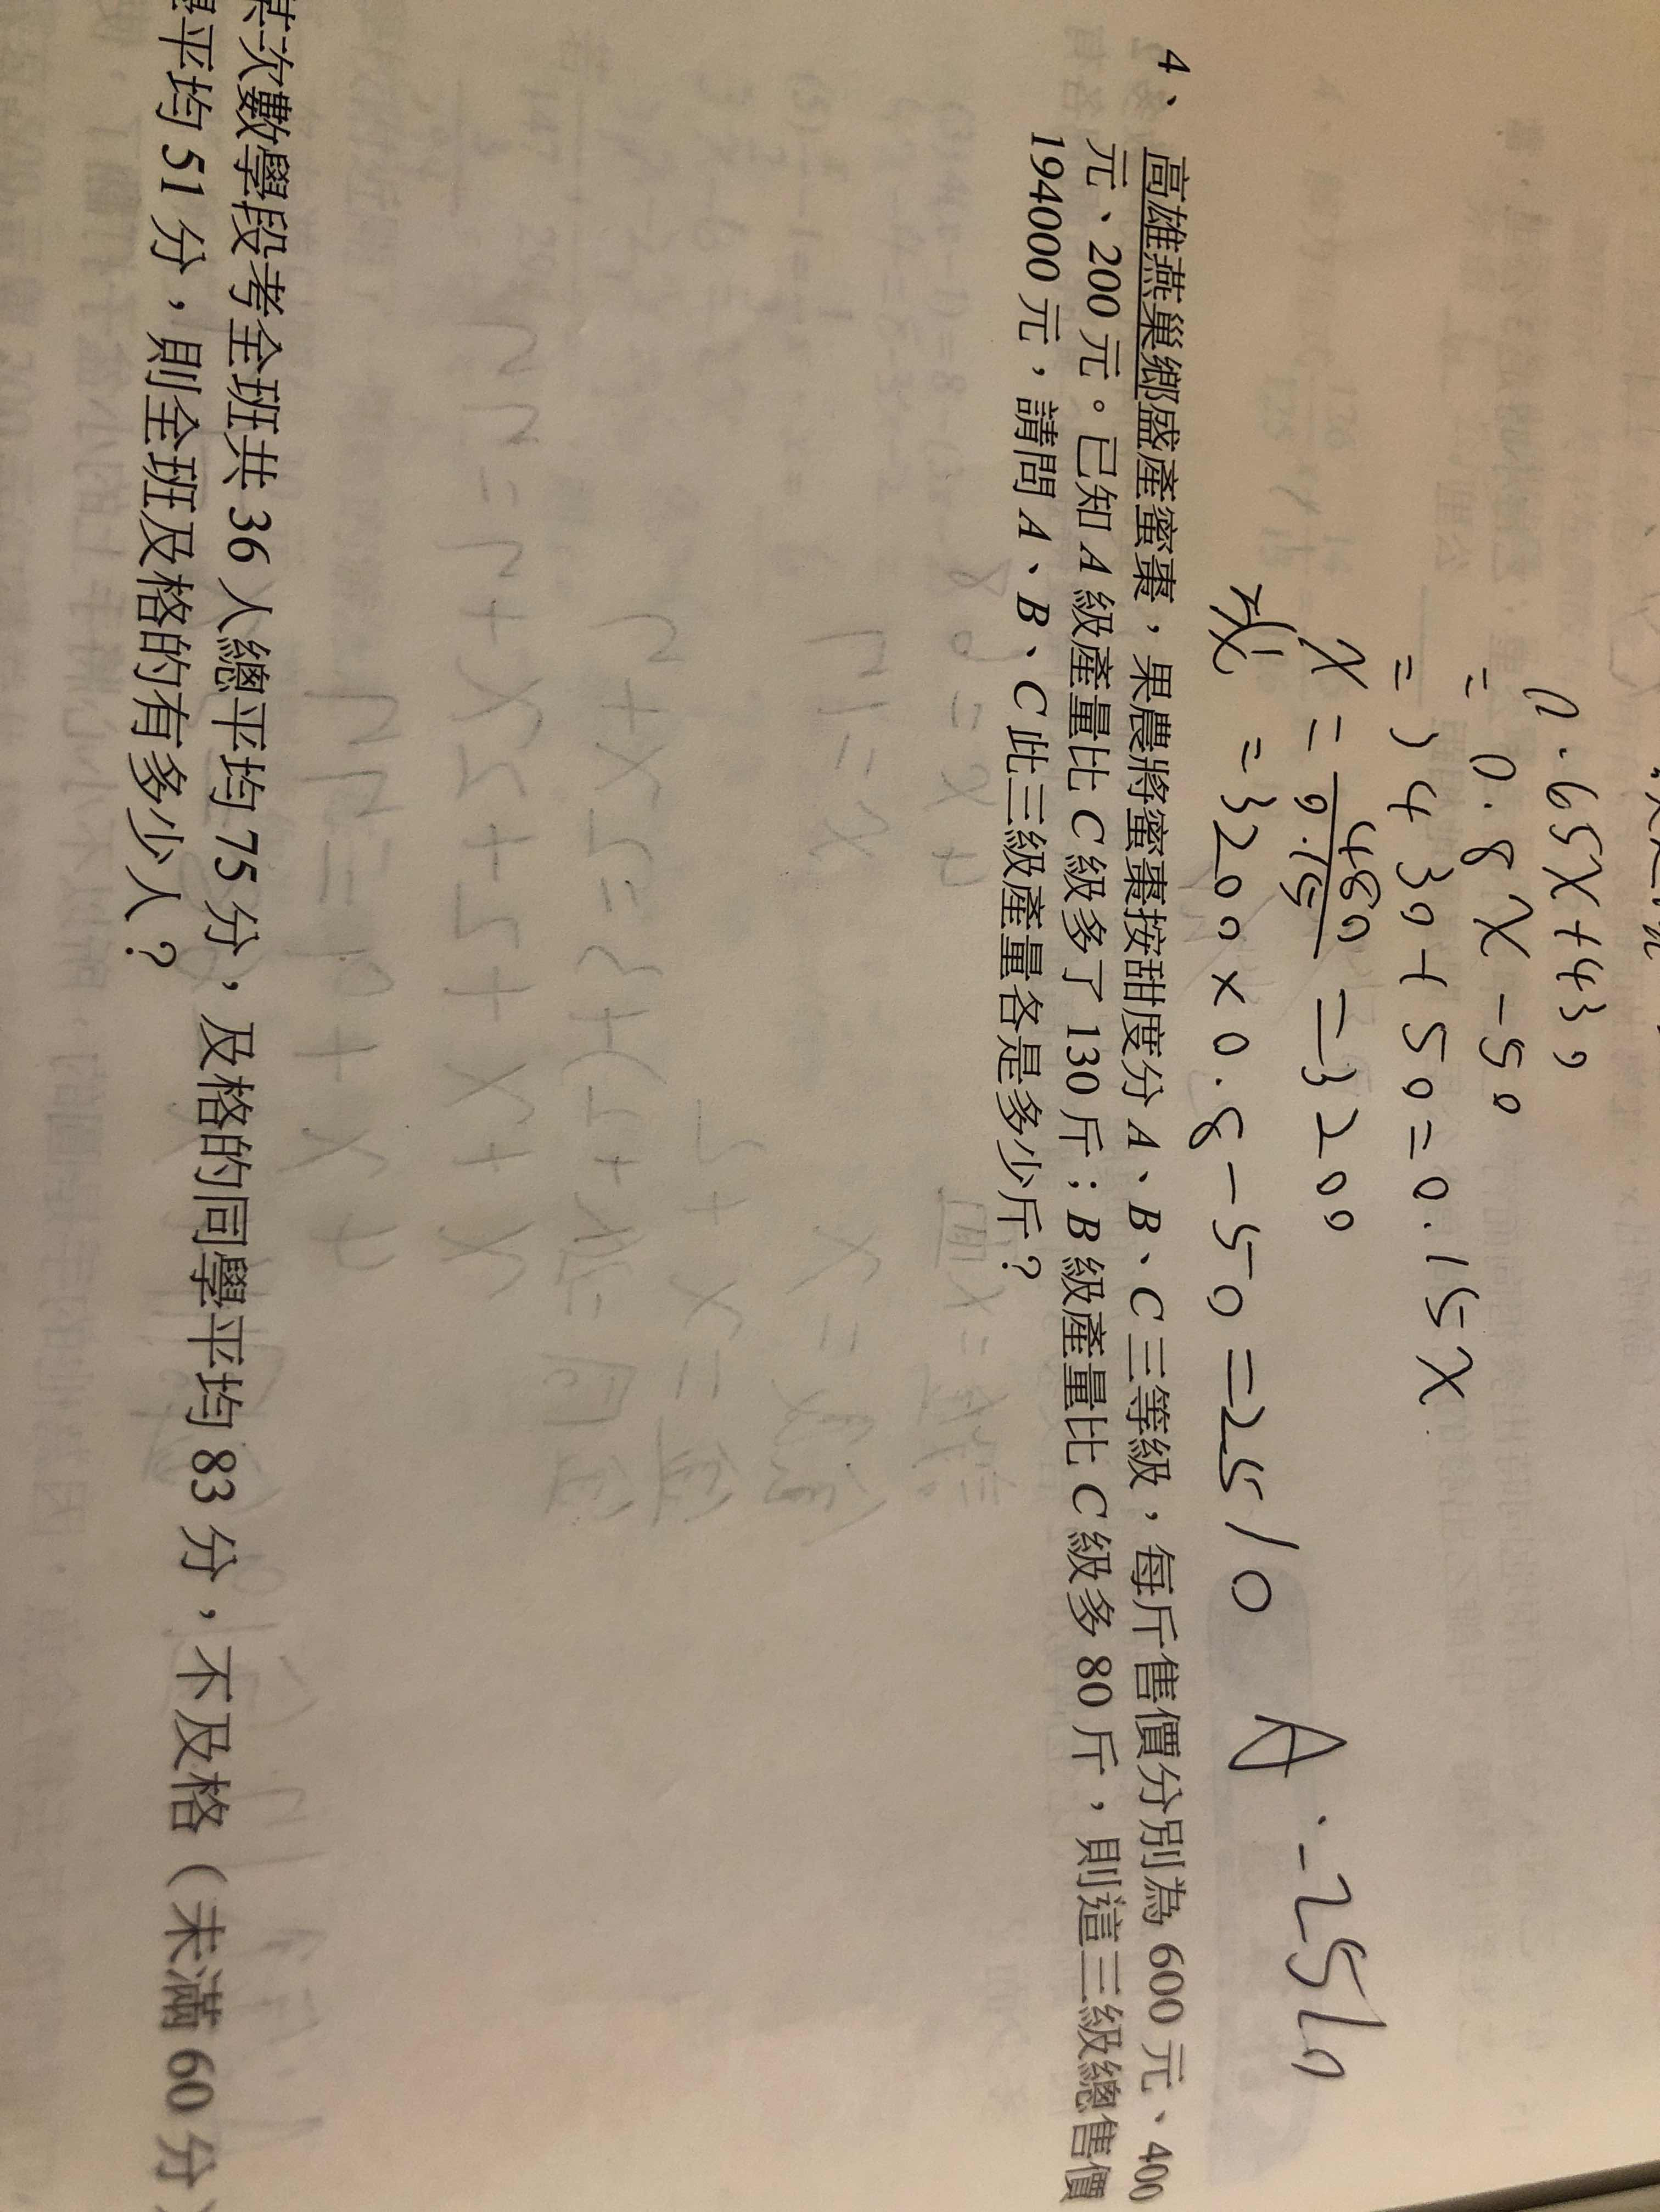 0.65x+430
=0.8x-50
=)430+50=0.15x
x=480/0.15=3200
=3200×0.8-50=2510
A:2510
4、高雄燕巢鄉盛產蜜棗，果農將蜜棗按甜度分 A、B、C 三等級，每斤售價分別為 600 元、400
元、200 元。已知 A 級產量比 C 級多了 130 斤；B 級產量比 C 級多 80 斤，則這三級總售價
194000 元，請問 A、B、C 此三級產量各是多少斤？
某次數學段考全班共 36 人總平均 75 分，及格的同學平均 83 分，不及格（未滿 60 分）
平均 51 分，則全班及格的有多少人？